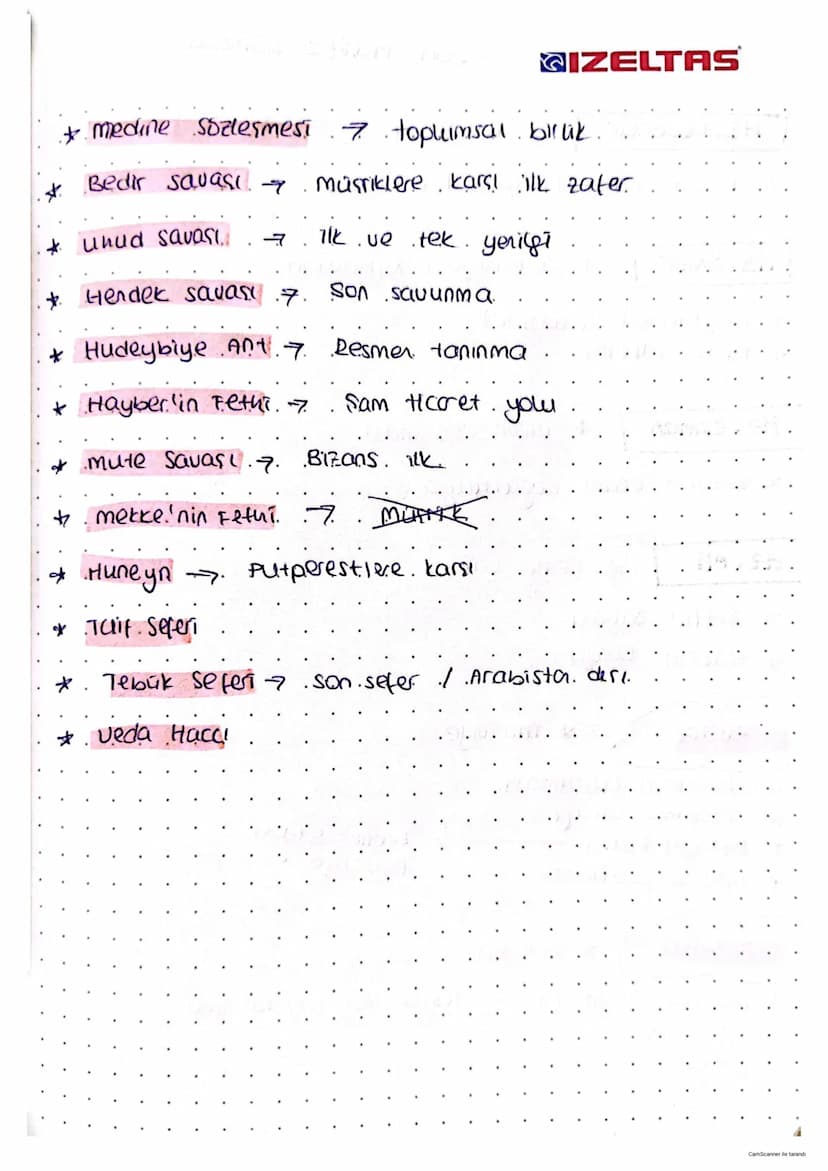 IZELTAS
* Medine Sözleşmesi → toplumsal birlik
* Bedir savaşı → müşriklere karşı ilk zafer
* Uhud savaşı → ilk ve tek yenilgi
* Hendek savaşı → Son savunma
* Hudeybiye Ant → Resmen tanınma
* Hayber'in Fethi → Şam ticaret yolu
* Mute Savaşı → Bizans ilk
* Mekke'nin Fethi →
* Huneyn → Putperestlere karşı
* Taif Seferi
* Tebük Seferi → son sefer / Arabistan dışı
* Veda Haccı
CamScanner ile tarandı